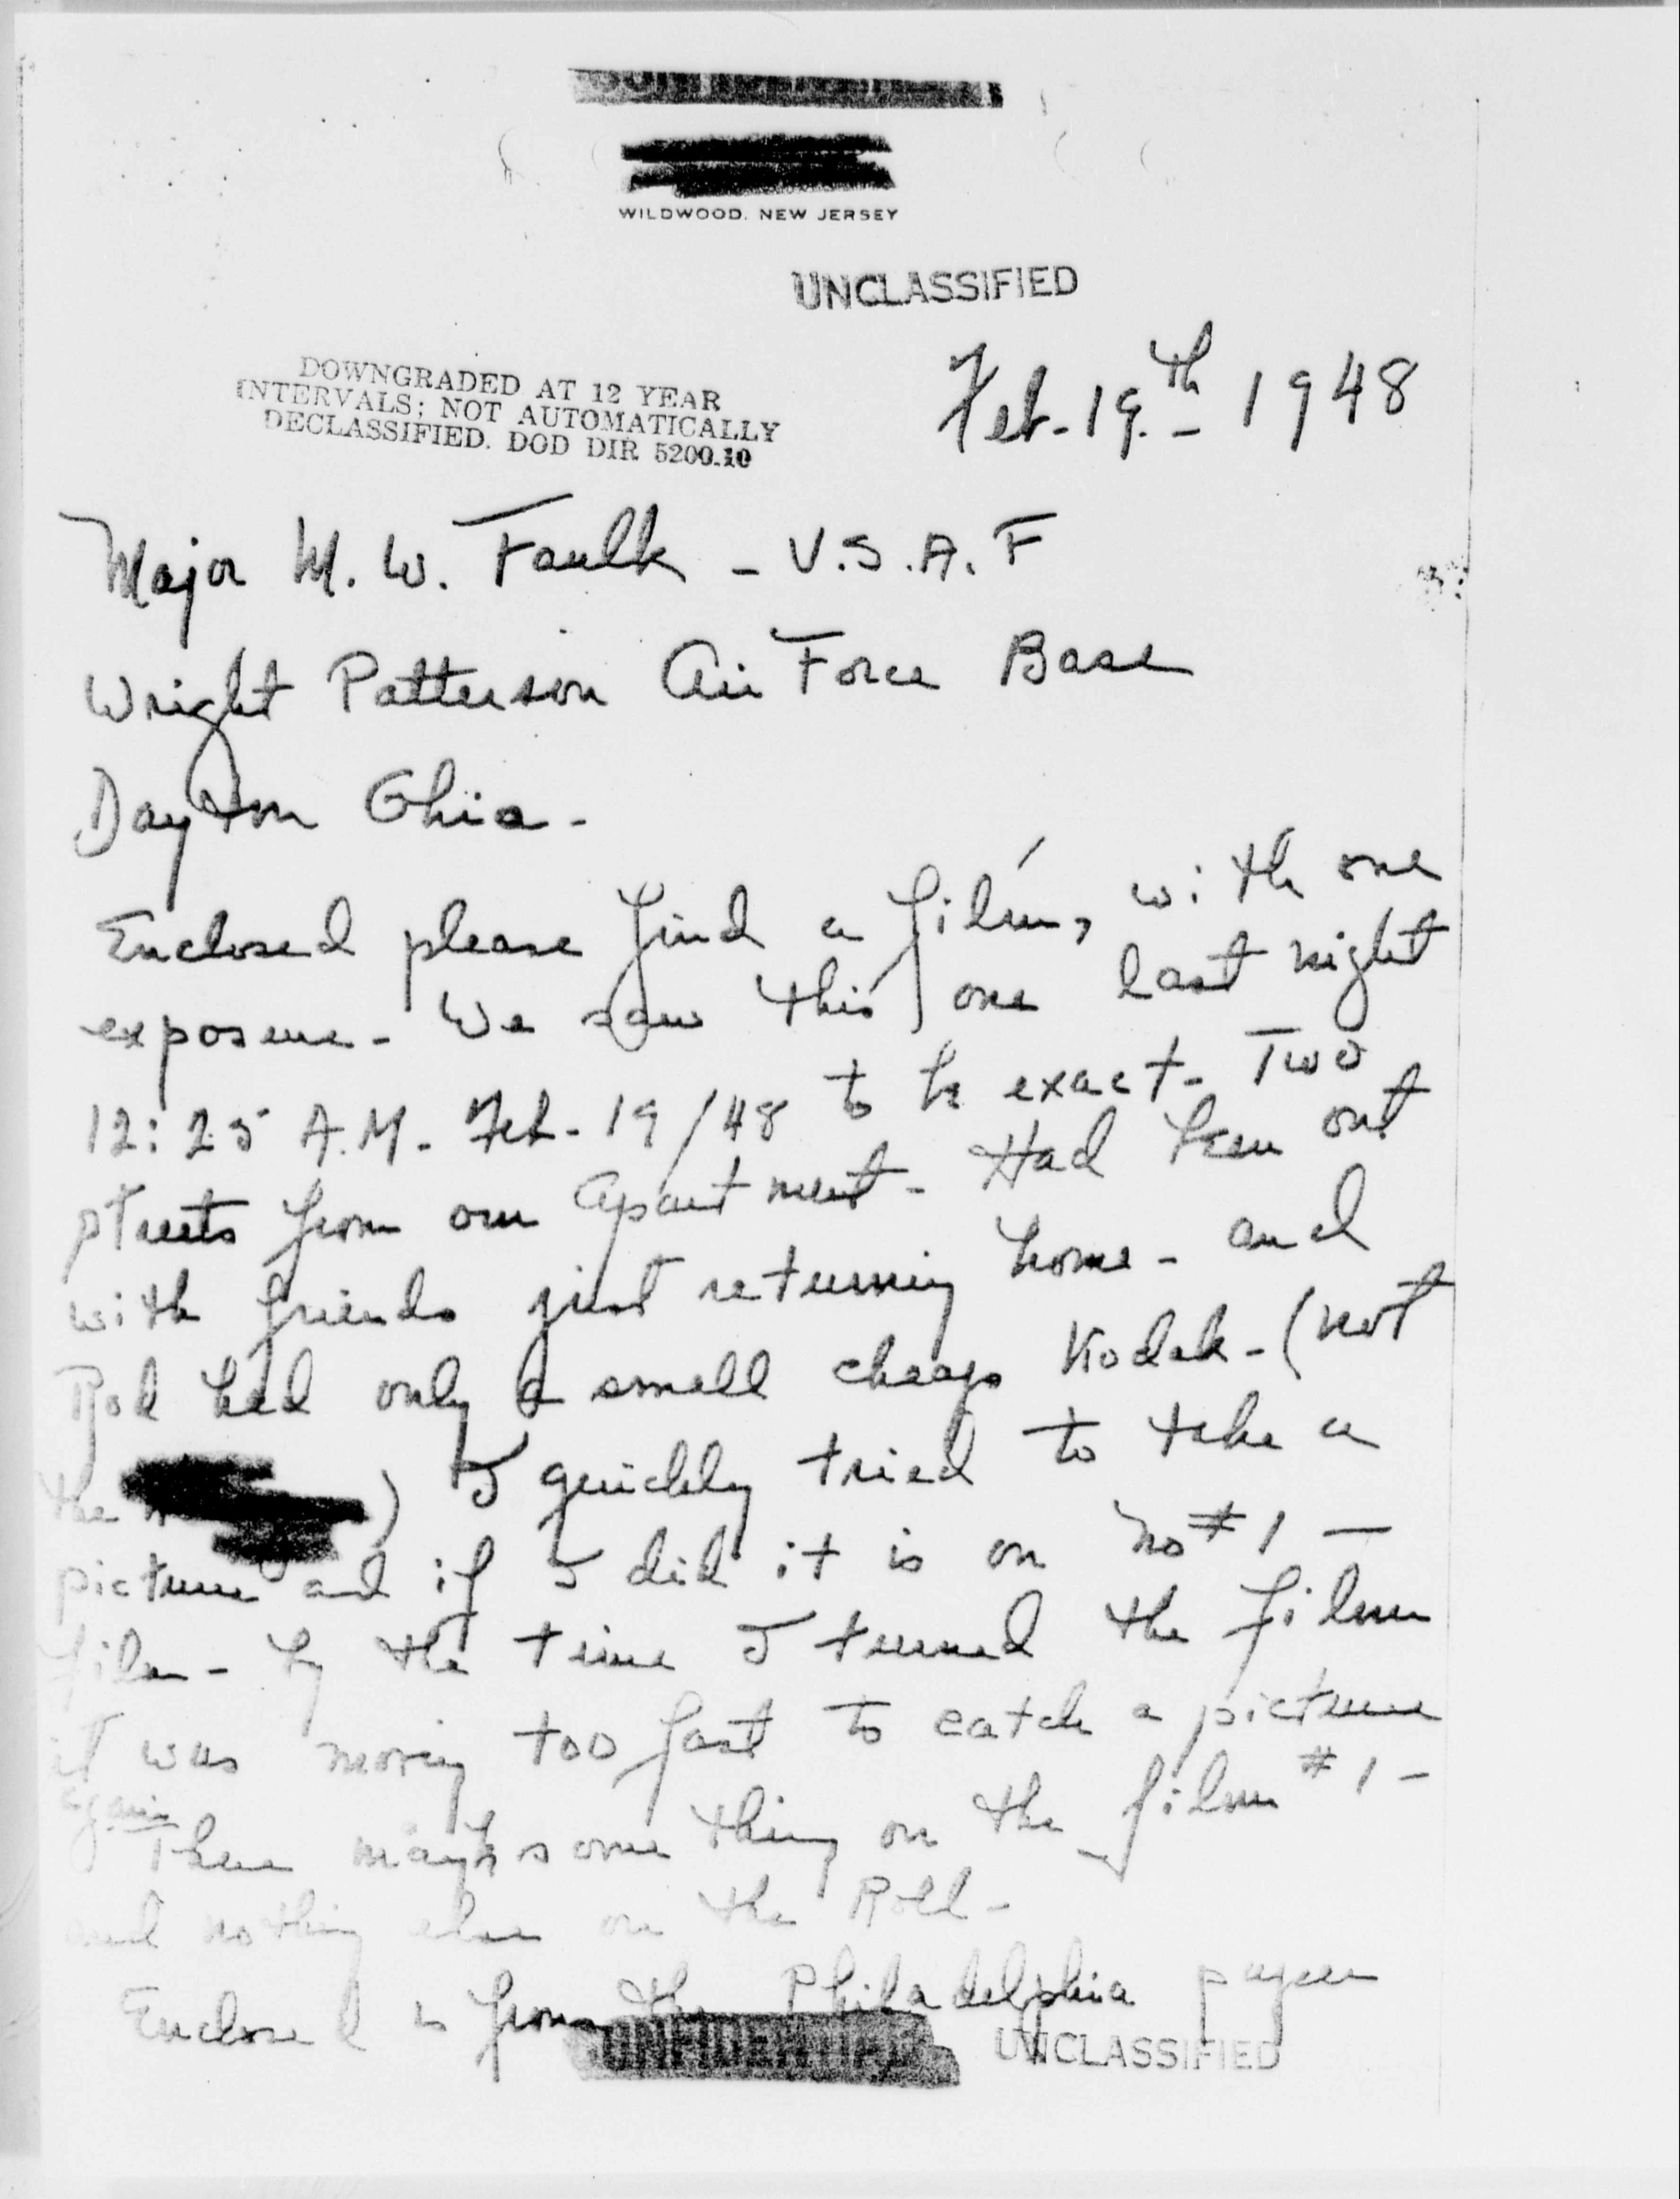 CONFIDENTIAL
WILDWOOD, NEW JERSEY
UNCLASSIFIED
DOWNGRADED AT 12 YEAR
INTERVALS; NOT AUTOMATICALLY
DECLASSIFIED. DOD DIR 5200.10
Feb-19.th- 1948
Major M. W. Faulk - U.S.A.F
Wright Patterson Air Force Base
Dayton Ohio -
Enclosed please find a film, with one
exposure - We saw this one last night
12:25 A.M. Feb-19/48 to be exact - Two
streets from our apartment - Had been out
with friends just returning home - and
Bob had only a small cheap Kodak - (not
the ) I quickly tried to take a
picture and if I did it is on No #1 -
film - by the time I turned the film
it was moving too fast to catch a picture
again
There maybe something on the film #1 -
and nothing else on the Roll -
Enclosed is from the Philadelphia paper
CONFIDENTIAL
UNCLASSIFIED